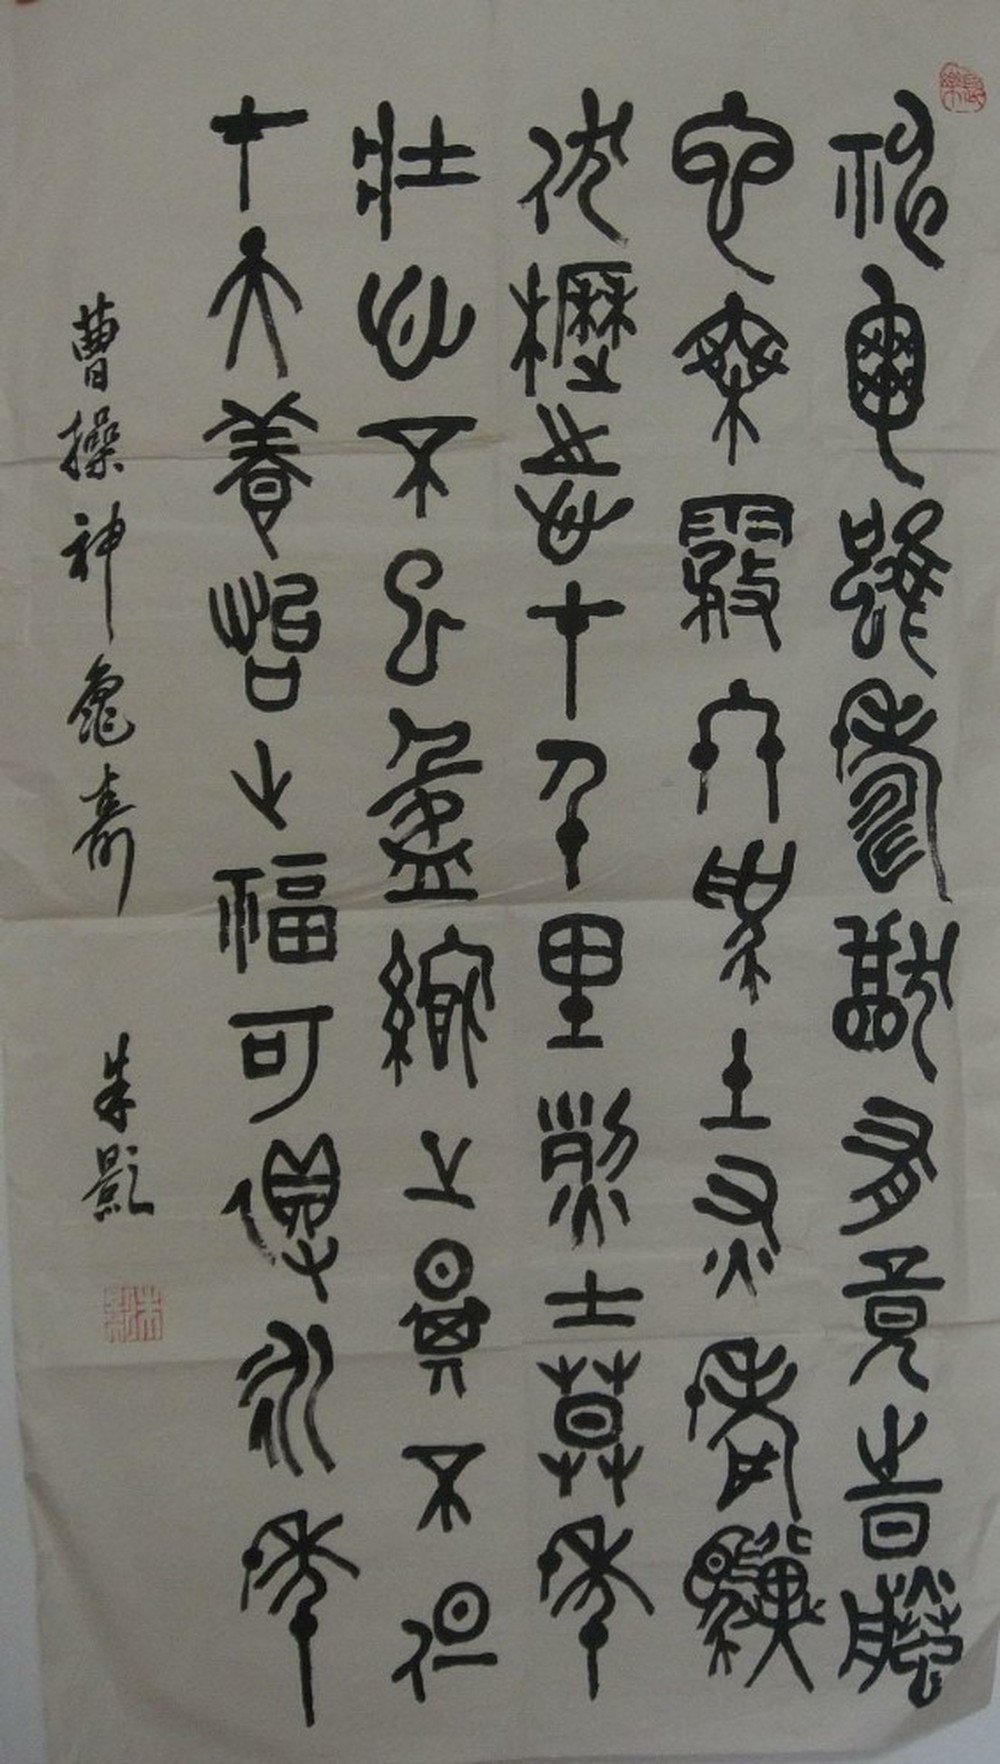 神龜雖壽猶有竟時騰
蛇乘霧終為土灰老驥
伏櫪志在千里烈士暮年
壯心不已盈縮之期不但
在天養怡之福可得永年
曹操神龜壽 朱影